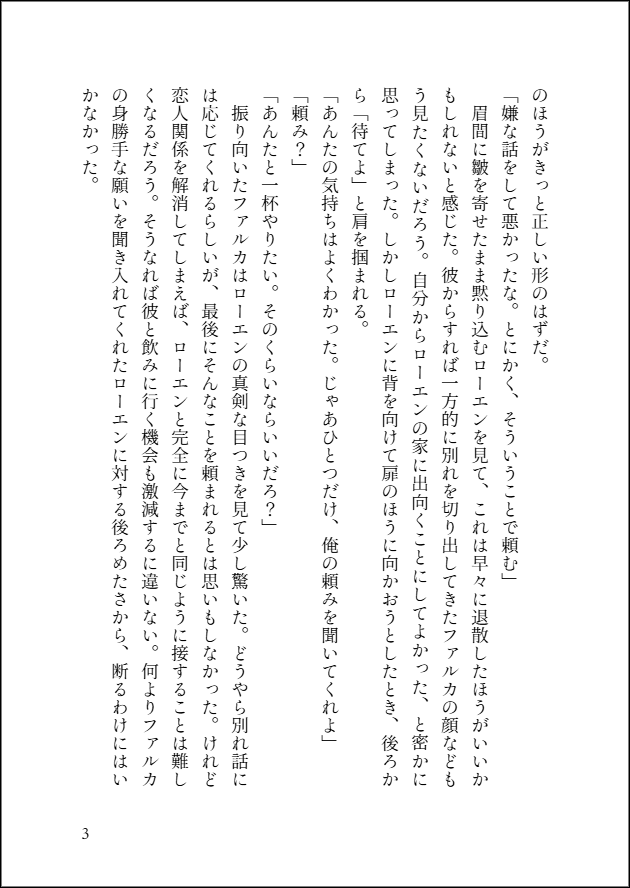 のほうがきっと正しい形のはずだ。
「嫌な話をして悪かったな。とにかく、そういうことで頼む」
　眉間に皺を寄せたまま黙り込むローエンを見て、これは早々に退散したほうがいいか
もしれないと感じた。彼からすれば一方的に別れを切り出してきたファルカの顔なども
う見たくないだろう。自分からローエンの家に出向くことにしてよかった、と密かに
思ってしまった。しかしローエンに背を向けて扉のほうに向かおうとしたとき、後ろか
ら「待てよ」と肩を掴まれる。
「あんたの気持ちはよくわかった。じゃあひとつだけ、俺の頼みを聞いてくれよ」
「頼み？」
「あんたと一杯やりたい。そのくらいならいいだろ？」
　振り向いたファルカはローエンの真剣な目つきを見て少し驚いた。どうやら別れ話に
は応じてくれるらしいが、最後にそんなことを頼まれるとは思いもしなかった。けれど
恋人関係を解消してしまえば、ローエンと完全に今までと同じように接することは難し
くなるだろう。そうなれば彼と飲みに行く機会も激減するに違いない。何よりファルカ
の身勝手な願いを聞き入れてくれたローエンに対する後ろめたさから、断るわけにはい
かなかった。
3